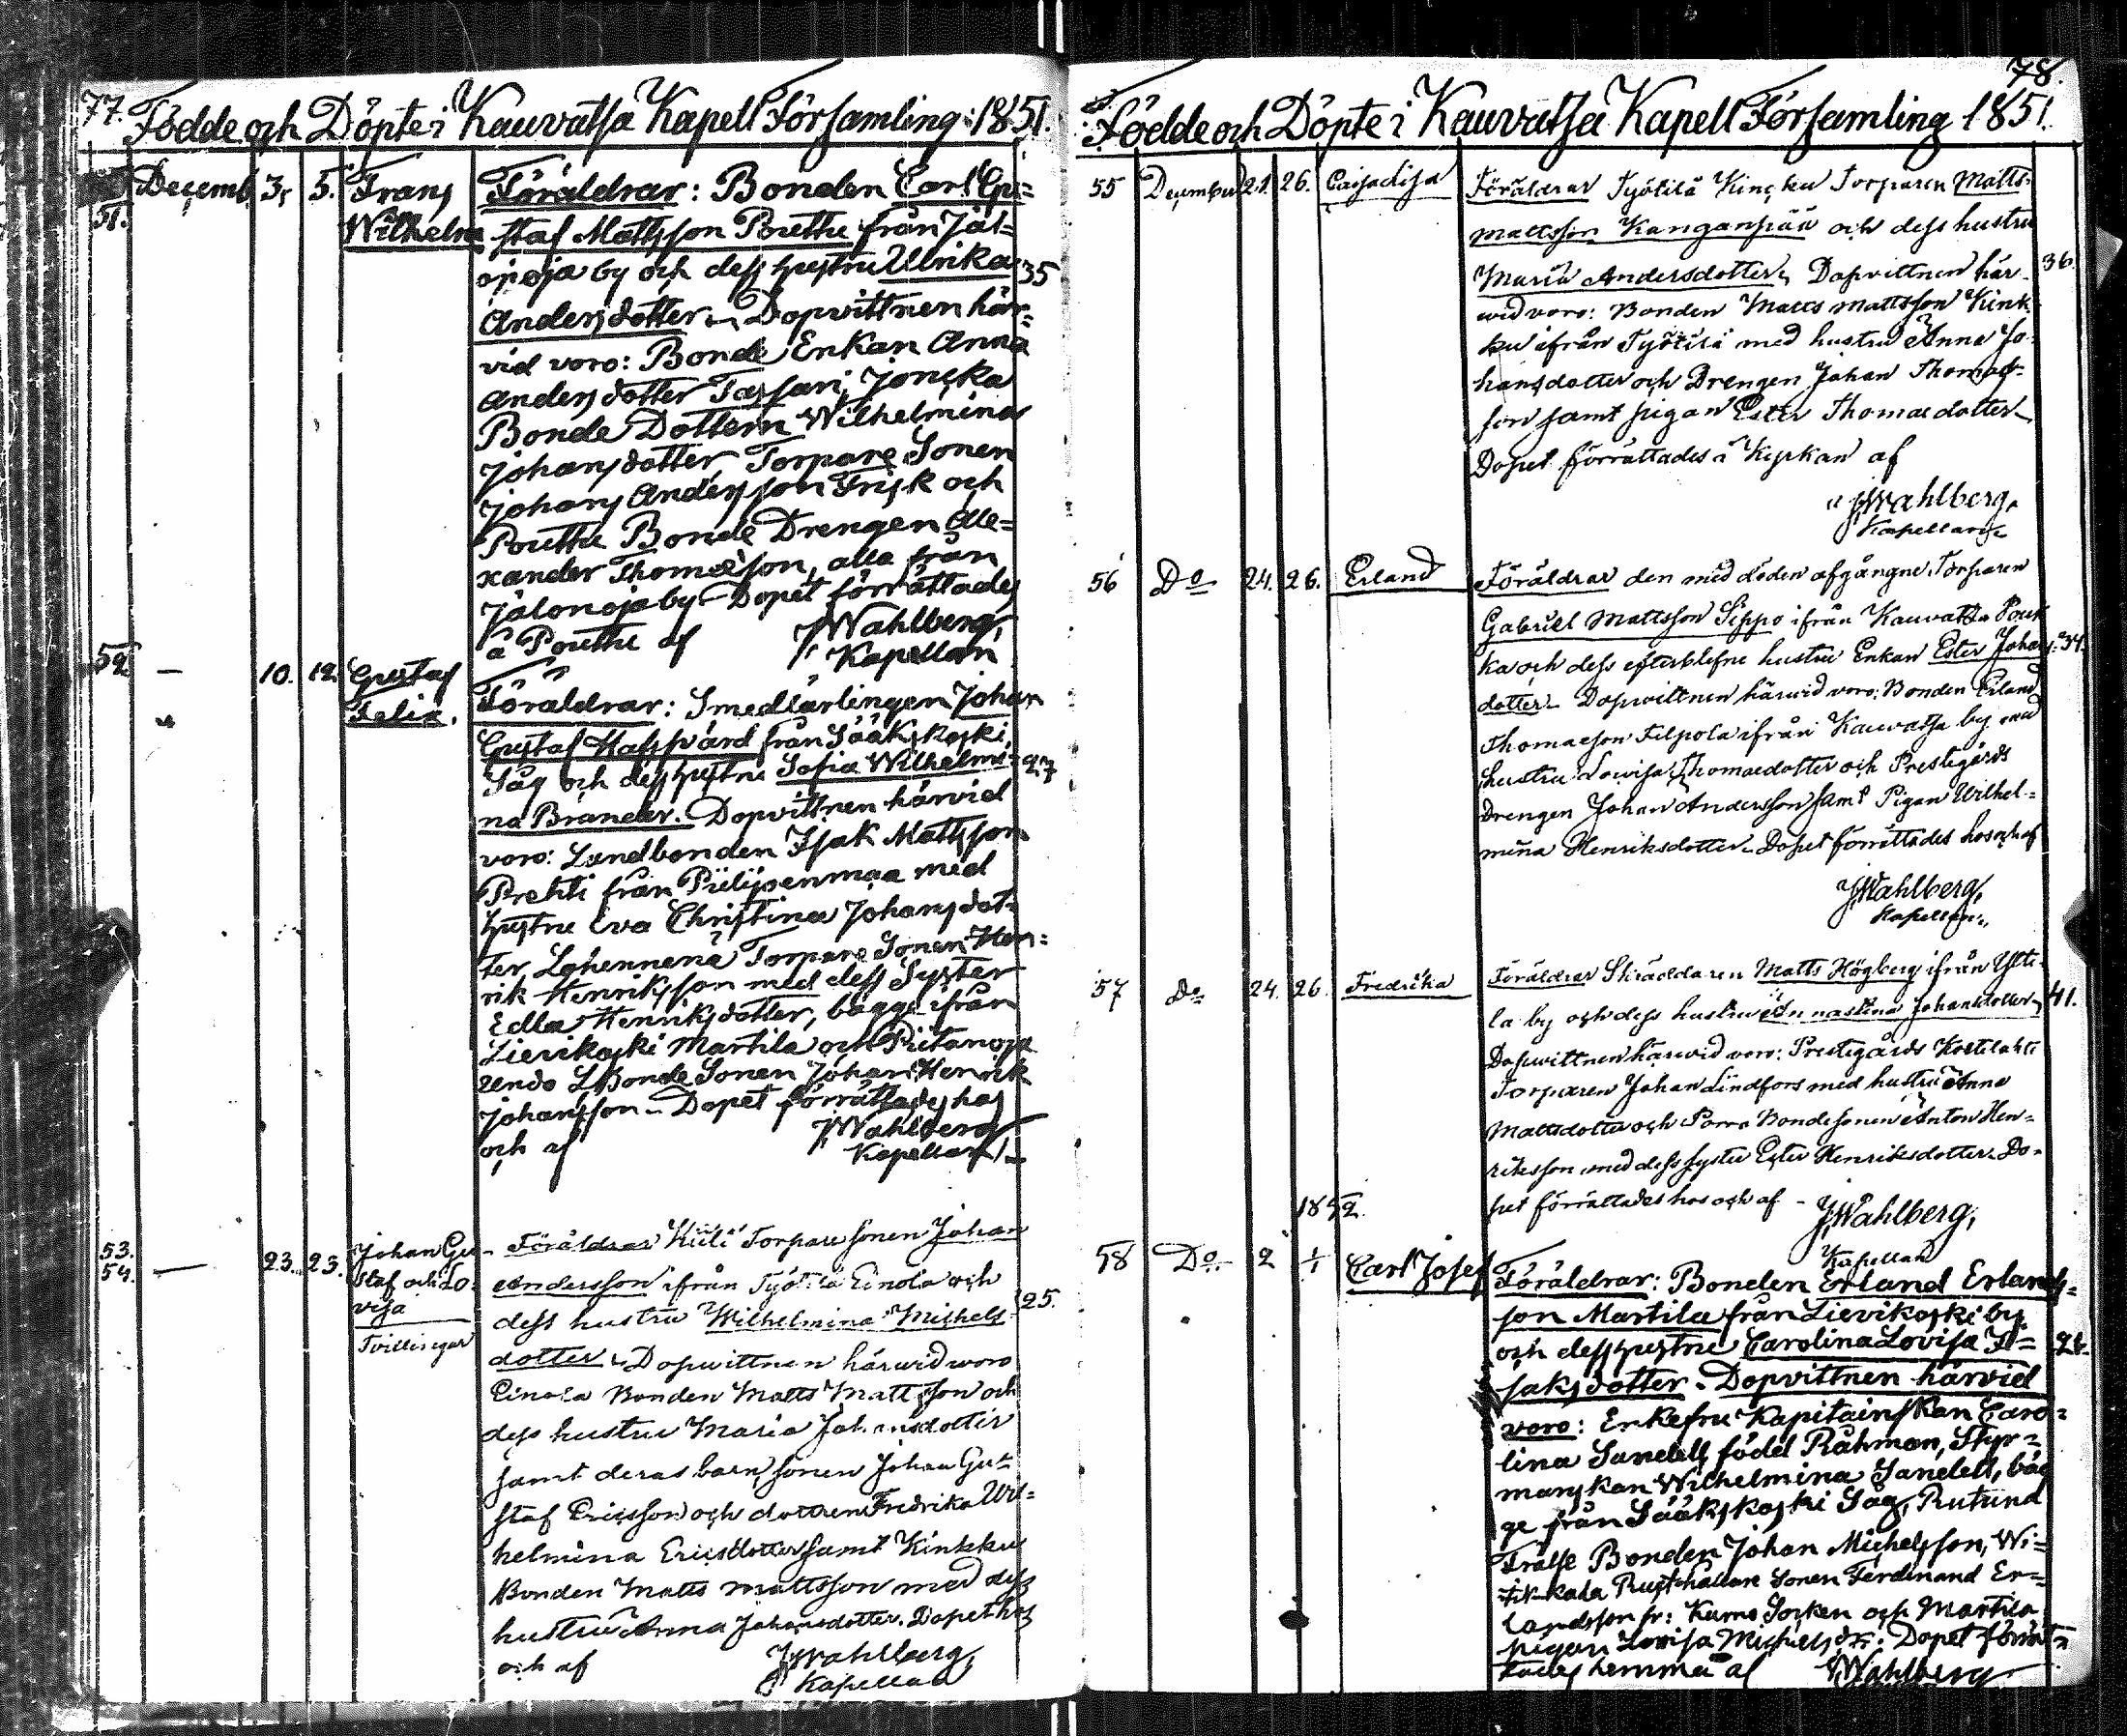 77. Födde och Döpte i Kauvatsa Kapell Församling 1851.
51. Decemb. 3. 5. Frans Wilhelm
Föräldrar: Bonden Carl Gu=
staf Mattsson Pouttu från Jal=
onoja by och dess hustru Ulrika 35
Andersdotter. Dopvittnen här=
vid voro: Bonde Enkan Anna
Andersdotter Tassari, Jonska
Bonde Dottern Wilhelmina
Johansdotter, Torpare Sonen
Johans Andersson Frisk och
Pouttu Bonde Drengen Ale=
xander Thomasson, alla från
Jalonoja by. Dopet förrättades
å Pouttu af JWahlberg,
Kapellan
52 — 10. 12. Gustaf Felix.
Föräldrar: Smedlärlingen Johan
Gustaf från Sääkskoski
Såg och dess hustru Sofia Wilhelmi= 27
na Brander. Dopvittnen härvid
voro: Landbonden Isak Mattsson
Prehti från Piilijsenmaa med
hustru Eva Christina Johansdot=
ter, Torpare Sonen Hen=
rik Henriksson med dess Syster
Edla Henriksdotter, bägge ifrån
Lievikoski Martila och Pitänoja
Bonde Sonen Johan Henrik
Johansson. Dopet förrättades hos
och af JWahlberg
Kapellan
53. 54. — 23. 23. Johan Gu=
staf och Lo=
visa
Tvillingar
Föräldrar Kiili Torpare sonen Johan
Andersson ifrån Työtilä Einola och
dess hustru Wilhelmina Michels 25.
dotter. Dopwittnen härwid woro
Einola Bonden Matts Mattsson och
dess hustru Maria Johansdotter
samt deras barn, sonen Johan Gu=
staf Ericsson och dottren Fredrika Wil=
helmina Ericsdotter samt Kinkku
Bonden Matts Mattsson med dess
hustru Anna Johansdotter. Dopet hos
och af JWahlberg,
Kapellan
78.
Födde och Döpte i Kauvatsa Kapell Församling 1851.
55 December 21. 26. Caisa Lisa
Föräldrar Työtilä Kincku Torparen Matts
Mattsson Kanganpää och dess hustru
Maria Andersdotter, Dopvittnen här 36.
wid voro: Bonden Matts Mattsson Kink
ku ifrån Työtilä med hustru Anna Jo=
hansdotter och Drengen Johan Thomas=
son samt pigan Ester Thomasdotter
Dopet förrättades i Kyrkan af
JWahlberg,
Kapellan
56 Do 24. 26. Erland
Föräldrar den med döden afgångne Torparen
Gabriel Mattsson Seppo ifrån Kauvatsa
ka och dess efterblefne hustru Enkan Ester Johans= 34.
dotter. Dopwittnen härwid voro: Bonden Erland
Thomasson Filpola ifrån Kauvatsa by med
hustru Lowisa Thomasdotter och Prestegårds
Drengen Johan Andersson samt Pigan Wilhel=
mina Henriksdotter. Dopet förrättades hos och af
JWahlberg,
Kapellan.
57 Do 24. 26. Fredrika
Föräldrar Skräddaren Matts Högberg ifrån Ytti=
la by och dess hustru Anna Stina Johansdotter 41.
Dopwittnen härwid voro: Prestegårds
Torparen Johan Lindfors med hustru Anna
Mattsdotter och Porra Bondesonen Anton Hen=
riksson med dess syster Ester Henriksdotter. Do=
pet förrättades hos och af JWahlberg,
Kapellan
1852.
58 Do 2 Carl Josef
Föräldrar: Bonden Erland Erlands=
son Martila från Lievikoski by
och dess hustru Carolina Lovisa I=
saksdotter. Dopvittnen härvid
voro: Enkefru Kapitainskan Caro=
lina Sandell född Råhman, Styr=
manskan Wilhelmina Sandell, bäg
ge från Sääkskoski Såg,
Frälse Bonden Johan Michelsson, Wi=
Rusthållare Sonen Ferdinand Er=
landsson fr: Kumo Socken och Martila
pigan Lovisa Michelsdr: Dopet förrät=
tades hemma af JWahlberg